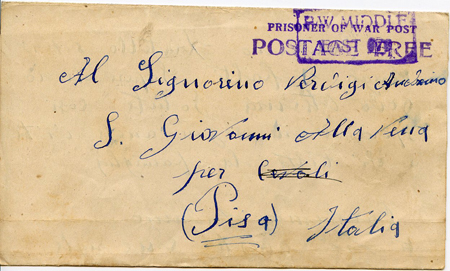 P.W. MIDDLE
EAST
PRISONER OF WAR POST
POSTAGE FREE
Al Signorino Verdigi
S. Giovanni Alla Vena
per
(Pisa) Italia